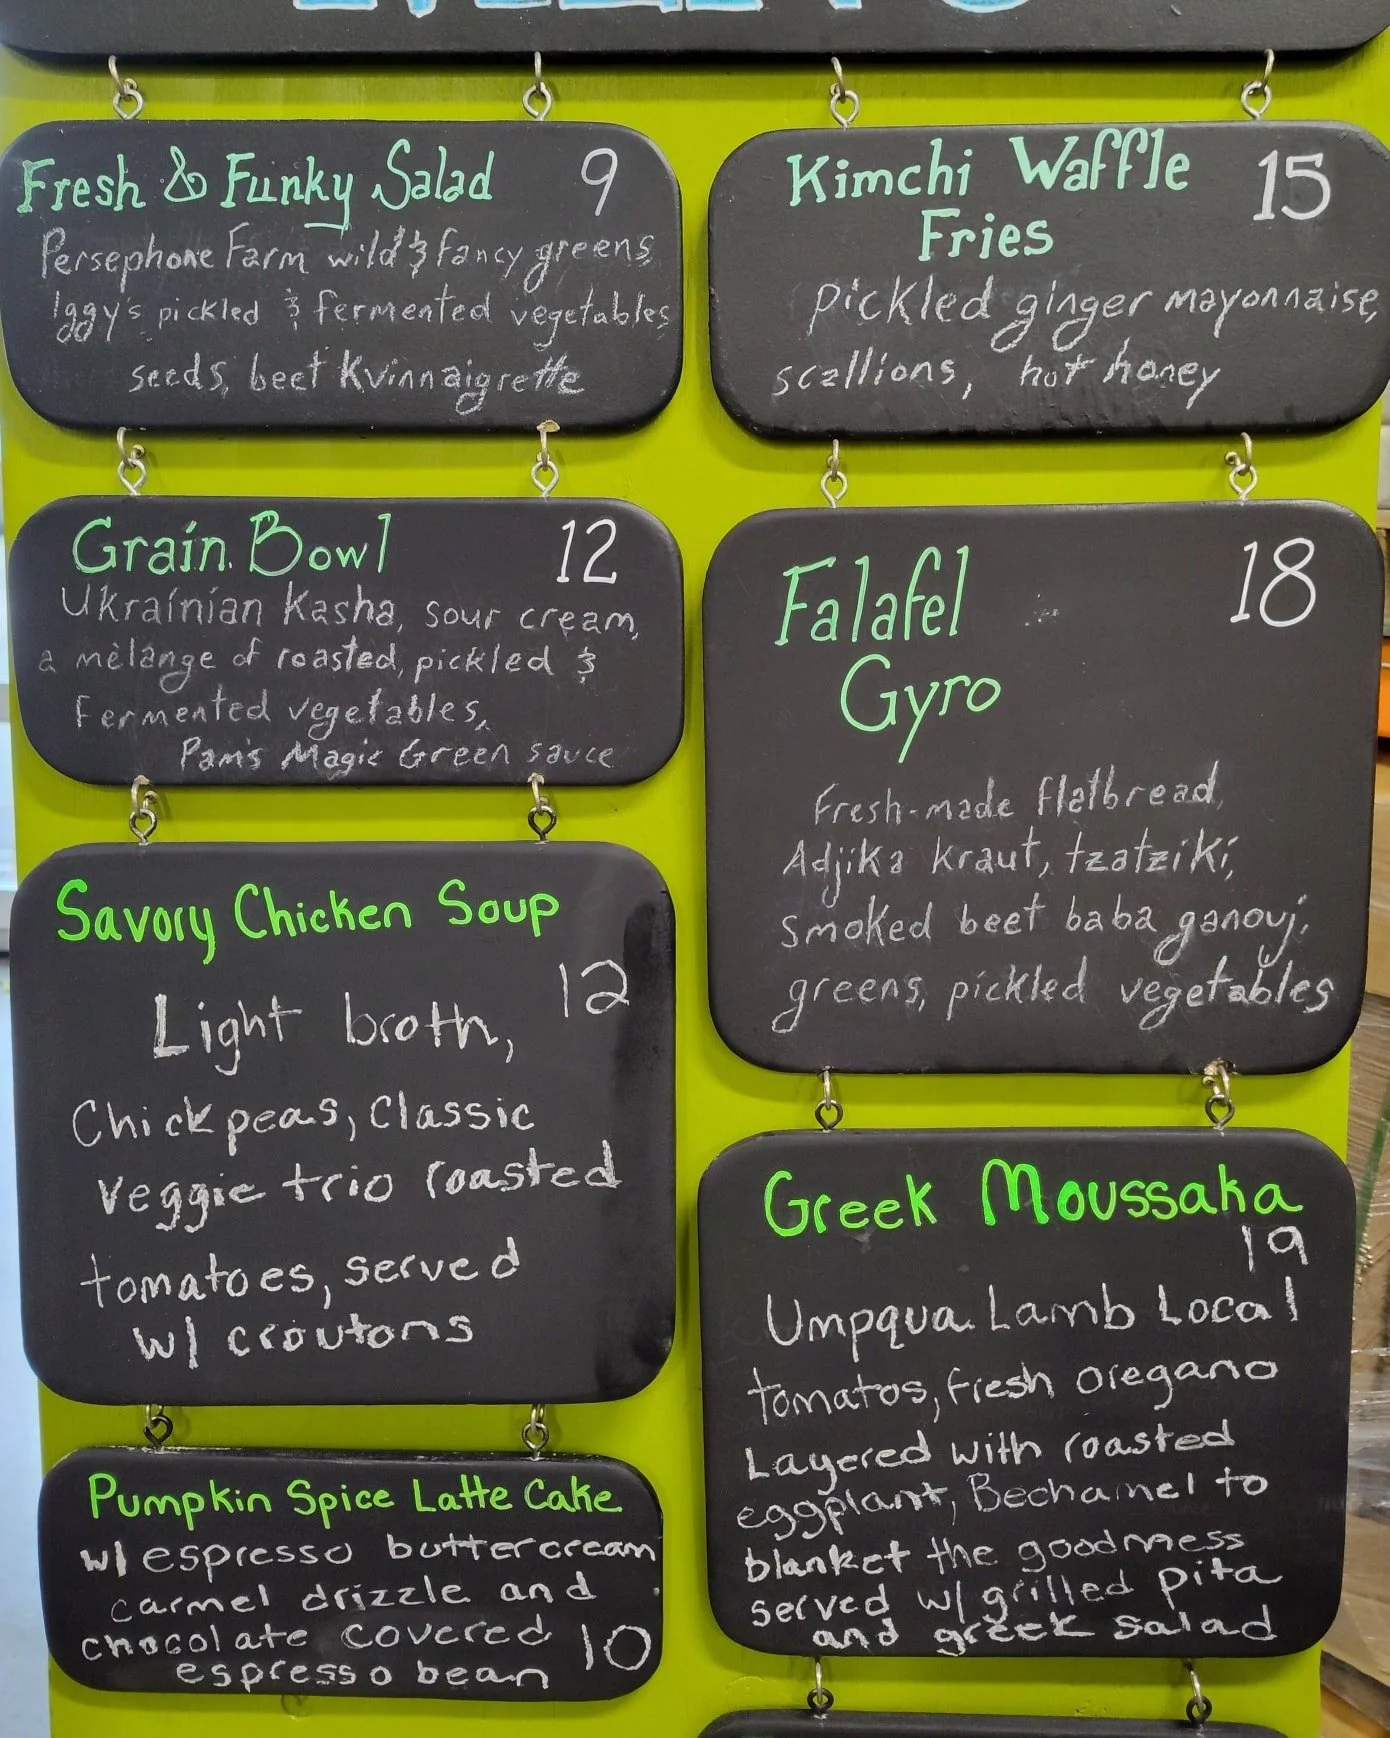 Fresh & Funky Salad 9
Persephone Farm wild & fancy greens,
Iggy's pickled & fermented vegetables
seeds, beet Kvinnaigrette
Grain Bowl 12
Ukrainian Kasha, sour cream,
a mèlange of roasted, pickled &
fermented vegetables,
Pam's Magic Green sauce
Savory Chicken Soup
12
Light broth,
Chickpeas, Classic
veggie trio roasted
tomatoes, served
w/ croutons
Pumpkin Spice Latte Cake
w/ espresso buttercream
carmel drizzle and
chocolate covered 10
espresso bean
Kimchi Waffle 15
Fries
pickled ginger mayonnaise,
scallions, hot honey
Falafel 18
Gyro
Fresh-made flatbread,
Adjika kraut, tzatziki,
smoked beet baba ganouj,
greens, pickled vegetables
Greek Moussaka
19
Umpqua Lamb Local
tomatos, fresh oregano
Layered with roasted
eggplant, Bechamel to
blanket the goodness
served w/ grilled pita
and greek salad